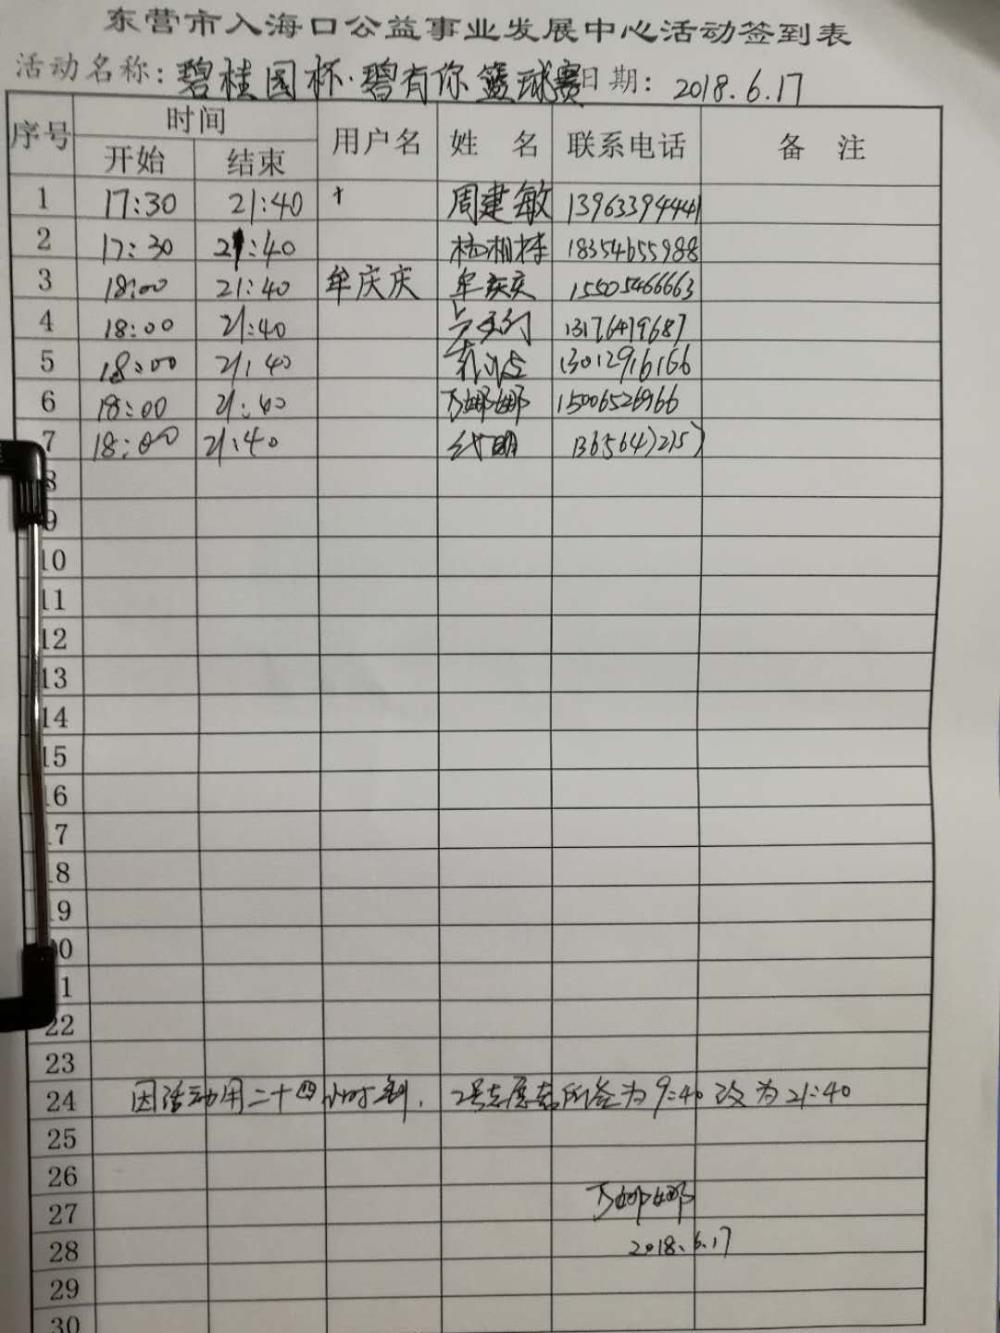 东营市入海口公益事业发展中心活动签到表
活动名称: 碧桂园杯·碧有你篮球赛 日期: 2018.6.17
序号 时间 用户名 姓 名 联系电话 备 注
开始 结束
1 17:30 21:40 周建敏 13963394441
2 17:30 21:40 18354655988
3 18:00 21:40 牟庆庆 牟庆庆 15505466663
4 18:00 21:40 13176419687
5 18:00 21:40 13012916166
6 18:00 21:40 万娜娜 15006526966
7 18:00 21:40 代明 13656472157
8
9
10
11
12
13
14
15
16
17
18
19
20
21
22
23
24 因活动用二十四小时制, 2号志愿者所签为9:40改为21:40
25
26
27 万娜娜
28 2018.6.17
29
30